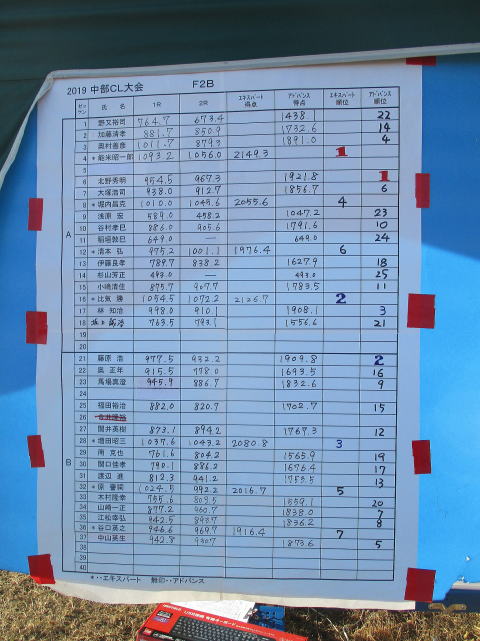 2019 中部CL大会 F2B
ゼッケン 氏名 1R 2R エキスパート得点 アドバンス得点 エキスパート順位 アドバンス順位
A
1 野又裕司 764.7 673.4 1438.1 22
2 加藤清孝 881.7 850.9 1732.6 14
3 奥村善彦 1011.7 879.3 1891.0 4
4 *能米昭一郎 1093.2 1056.0 2149.3 1
5
6 北野秀明 954.5 967.3 1921.8 1
7 大塚浩司 938.0 912.7 1856.7 6
8 *堀内昌克 1010.0 1045.6 2055.6 4
9 浅原 宏 589.0 458.2 1047.2 23
10 谷村孝巳 886.0 905.6 1791.6 10
11 稲垣敦巳 649.0 — 649.0 24
12 *清本 弘 975.2 1001.1 1976.4 6
13 伊藤良孝 789.7 838.2 1627.9 18
14 杉山芳正 493.0 — 493.0 25
15 小嶋清佳 875.7 907.7 1783.5 11
16 *比気 勝 1054.5 1072.2 2126.7 2
17 林 知治 998.0 910.1 1908.1 3
18 763.5 793.1 1556.6 21
19
20
B
21 藤原 浩 977.5 932.2 1909.8 2
22 奥 正年 915.5 778.0 1693.5 16
23 馬場真澄 945.9 886.7 1832.6 9
24
25 福田裕治 882.0 820.7 1702.7 15
26
27 間井英樹 873.1 894.2 1767.3 12
28 *増田昭三 1037.6 1043.2 2080.8 3
29 南 克也 761.6 804.2 1565.9 19
30 関口佳孝 790.1 886.2 1676.4 17
31 渡辺 進 812.3 941.2 1753.5 13
32 *原 1024.5 992.2 2016.7 5
33 木村隆幸 755.6 803.5 1559.1 20
34 山崎一正 877.2 960.7 1838.0 7
35 江松幸弘 942.5 893.7 1836.2 8
36 *谷口英之 946.6 969.7 1916.4 7
37 中山英生 942.8 930.7 1873.6 5
38
39
40
*・・エキスパート 無印・・アドバンス